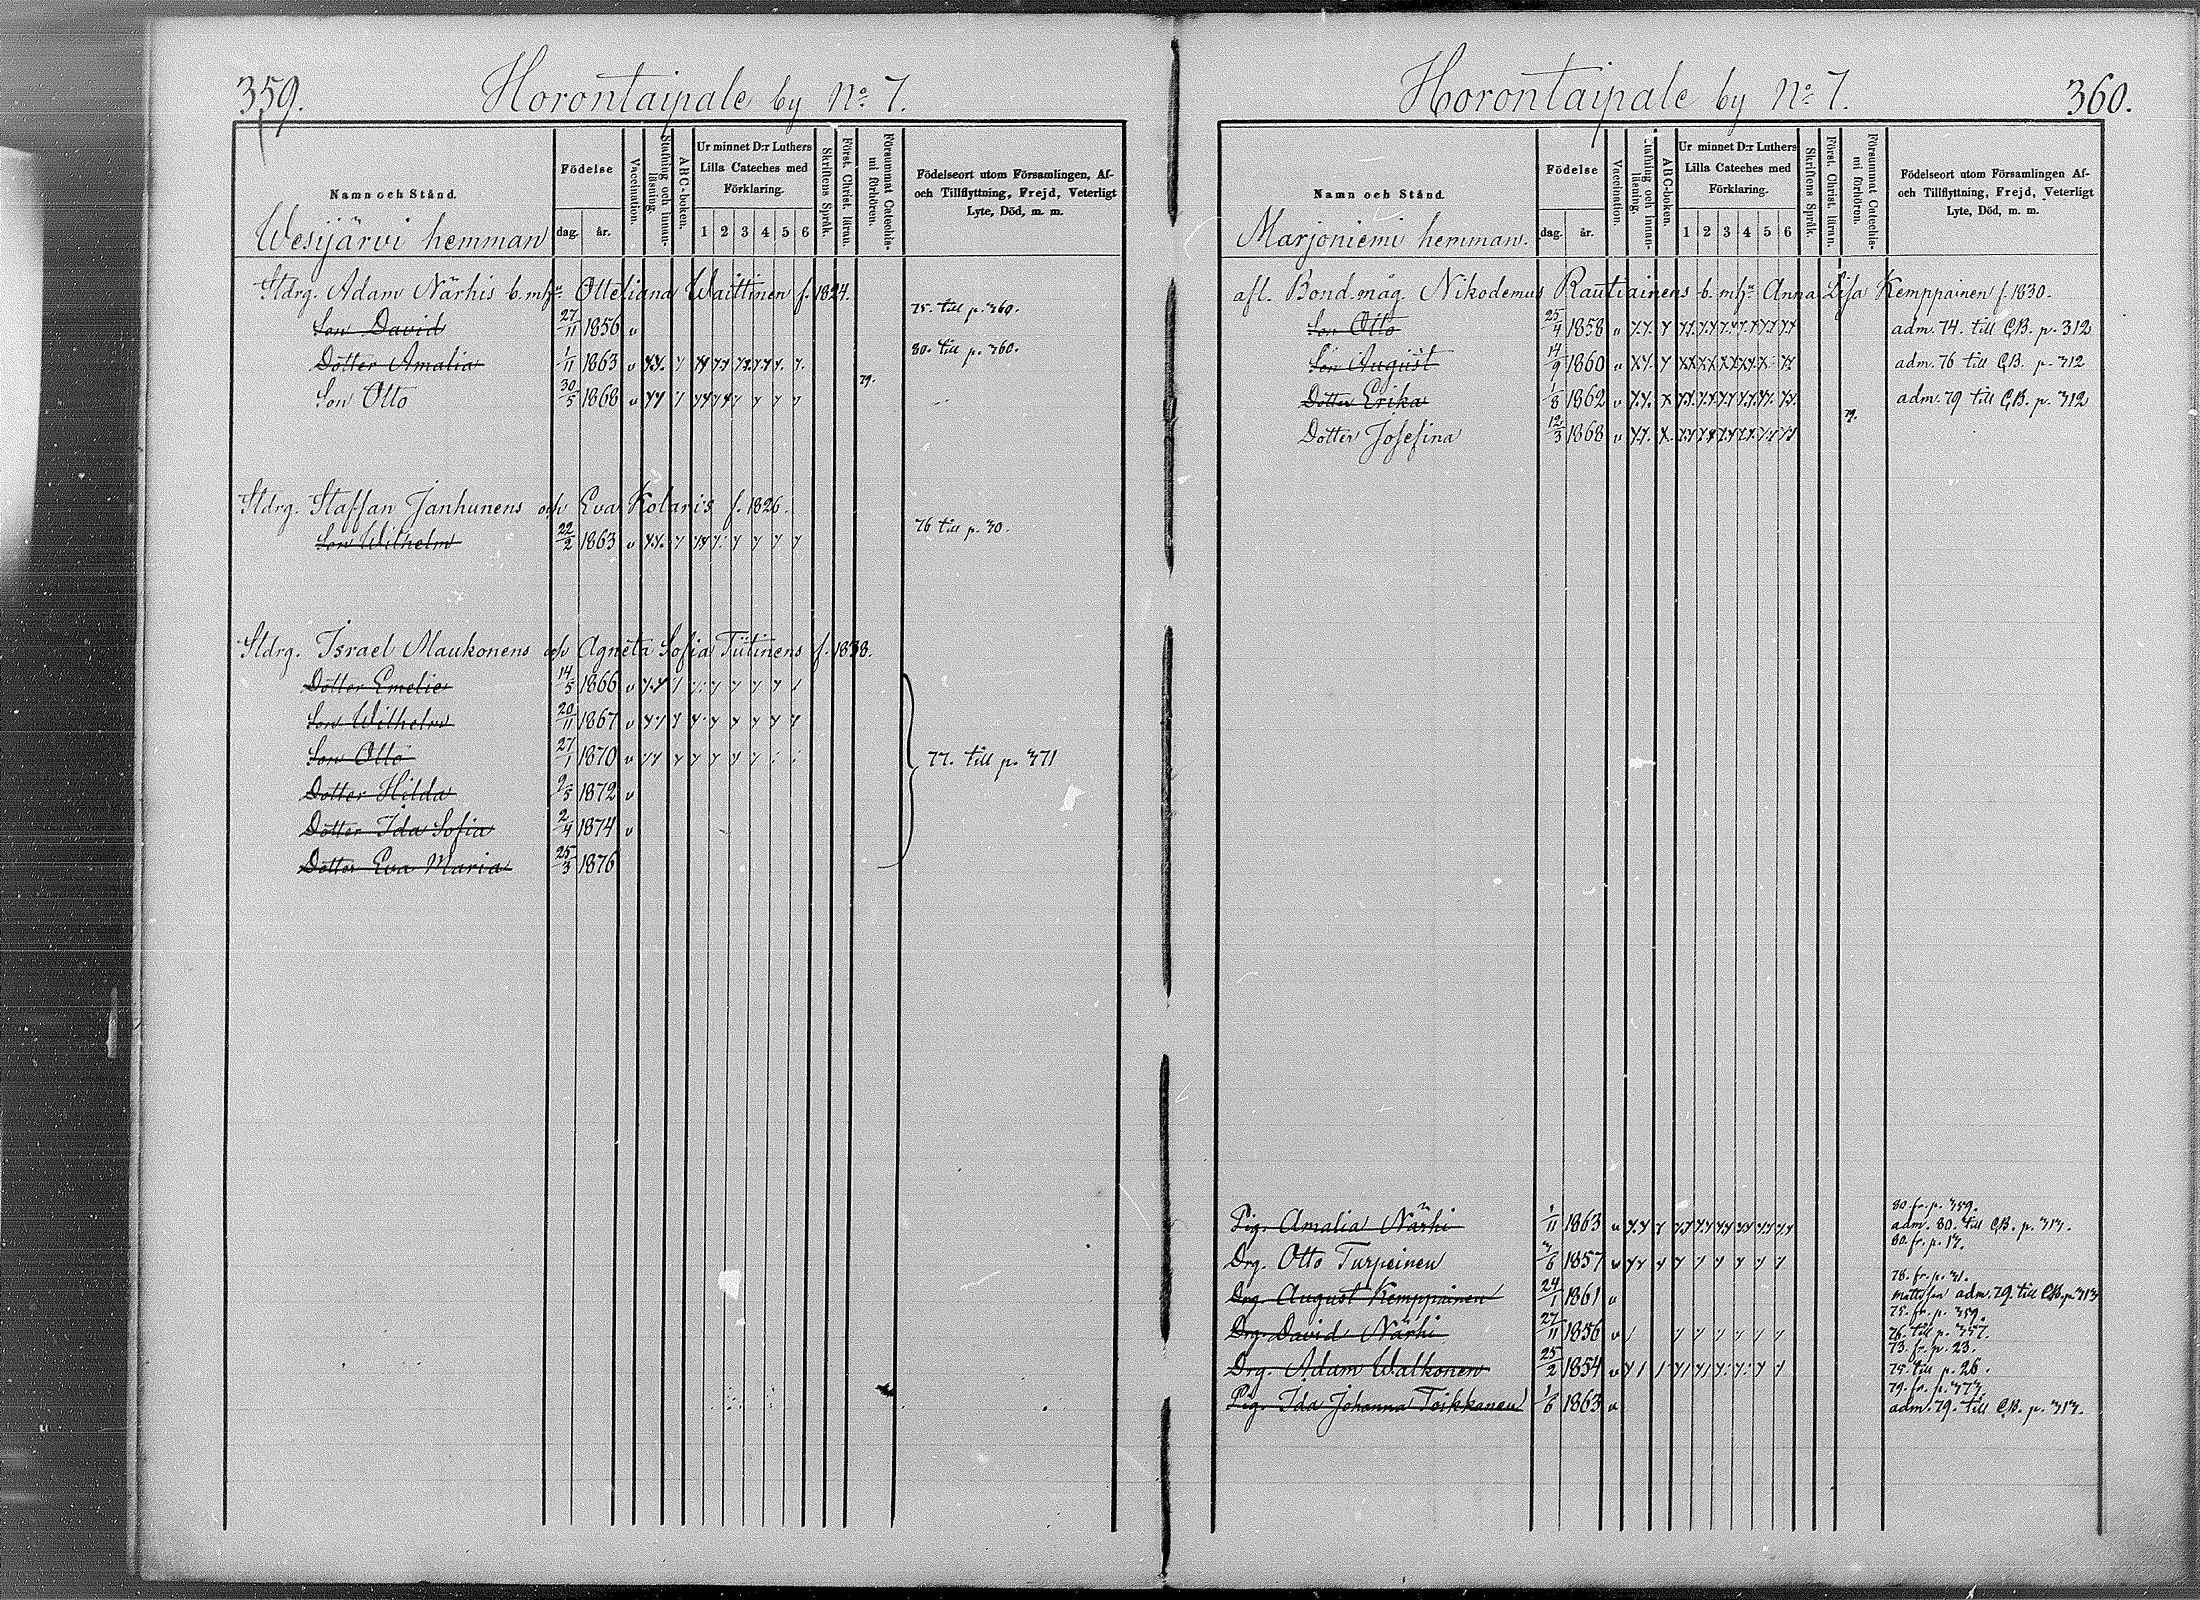 359. Horontaipale by No 7.
Namn och Stånd.
Födelse
dag. år.
Vaccination.
Stafning och innan-läsning.
ABC-boken.
Ur minnet D:r Luthers Lilla Cateches med Förklaring.
1 2 3 4 5 6
Skriftens Språk.
Först. Christ. läran.
Försummat Catechismi förhören.
Födelseort utom Församlingen, Af- och Tillflyttning, Frejd, Veterligt Lyte, Död, m. m.
Wesijärvi hemman
Stdrg. Adam Närhis b. m. hu Otteliana Waittinen f. 1824.
Son David 27/11 1856 75. till p. 360.
Dotter Amalia 1/11 1863 80. till p. 360.
Son Otto 30/5 1868 79.
Stdrg. Staffan Janhunens och Eva Kolaris f. 1826.
Son Wilhelm 22/2 1863 76 till p. 30.
Stdrg. Israel Maukonens och Agneta Sofia Tiitinens f. 1838.
Dotter Emelie 14/5 1866
Son Wilhelm 20/11 1867
Son Otto 27/1 1870 77. till p. 371
Dotter Hilda 9/5 1872
Dotter Ida Sofia 2/4 1874
Dotter Eva Maria 25/3 1876
Horontaipale by No 7. 360.
Namn och Stånd.
Födelse
dag. år.
Vaccination.
Stafning och innan-läsning.
ABC-boken.
Ur minnet D:r Luthers Lilla Cateches med Förklaring.
1 2 3 4 5 6
Skriftens Språk.
Först. Christ. läran.
Försummat Catechismi förhören.
Födelseort utom Församlingen Af- och Tillflyttning, Frejd, Veterligt Lyte, Död, m. m.
Marjoniemi hemman.
afl. Bond. måg. Nikodemus Rautiainens b. m. hu Anna Lisa Kemppainen f. 1830.
Son Otto 25/4 1858 adm. 74. till C.B. p. 312
Son August 14/9 1860 adm. 76 till C.B. p. 312
Dotter Erika 1/8 1862 adm. 79 till C.B. p. 312
Dotter Josefina 12/3 1868 79.
80. fr. p. 359.
Pig. Amalia Närhi 1/11 1863 adm. 80. till C.B. p. 313.
80. fr. p. 17.
Drg. Otto Turpeinen 3/6 1857
78. fr. p. 31.
Drg. August Kemppainen 24/1 1861 adm. 79. till C.B. p. 313
75. fr. p. 359.
Drg. David Närhi 27/11 1856 76. till p. 357.
73. fr. p. 23.
Drg. Adam Walkonen 25/2 1854 75. till p. 26.
79. fr. p. 373.
Pig. Ida Johanna Toikkanen 1/6 1863 adm. 79. till C.B. p. 313.